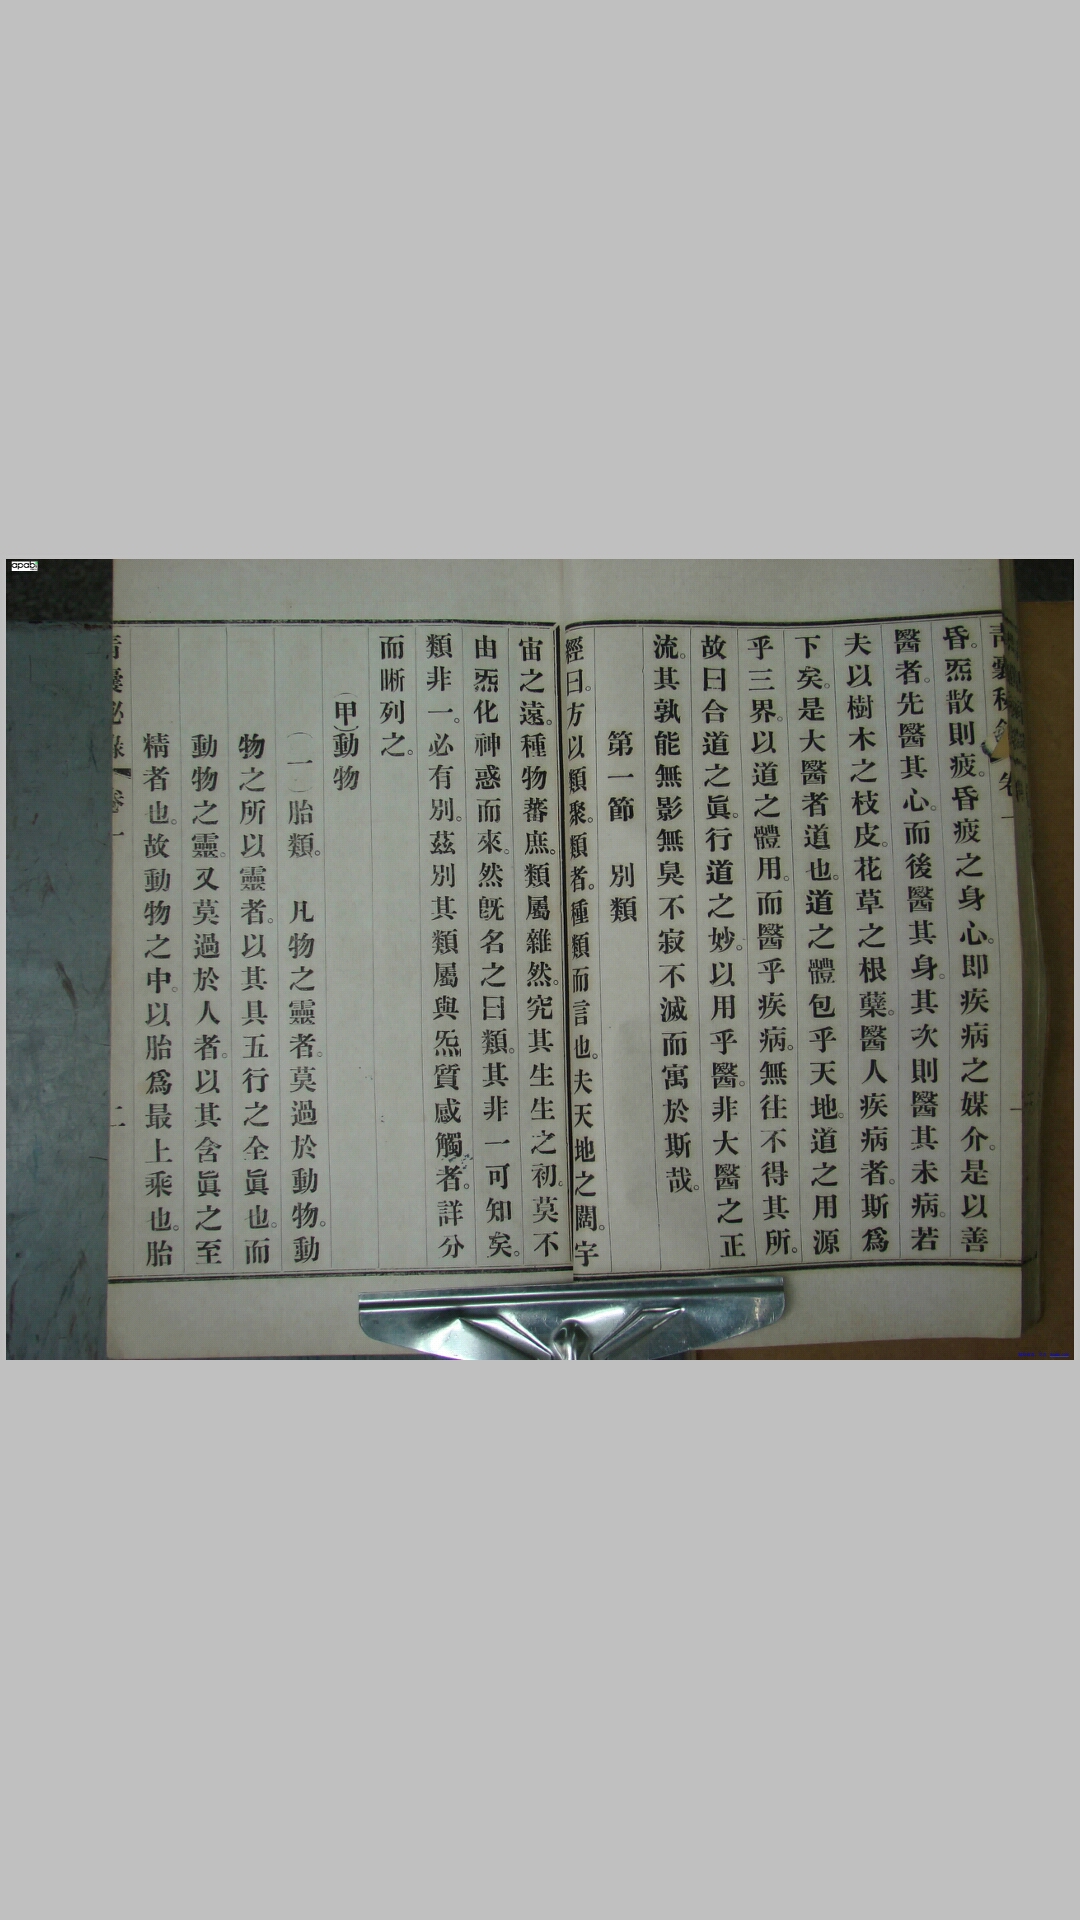 青囊秘錄 卷一 一
昏。炁散則疲。昏疲之身心。即疾病之媒介。是以善
醫者。先醫其心。而後醫其身。其次則醫其未病。若
夫以樹木之枝皮。花草之根蘖。醫人疾病者。斯爲
下矣。是大醫者道也。道之體包乎天地。道之用源
乎三界。以道之體用。而醫乎疾病。無往不得其所。
故曰合道之眞。行道之妙。以用乎醫。非大醫之正
流。其孰能無影無臭不寂不滅而寓於斯哉。
第一節 別類
經曰。方以類聚。類者。種類而言也。夫天地之闊。宇
宙之遠。種物蕃庶。類屬雜然。究其生生之初。莫不
由炁化神惑而來。然旣名之曰類。其非一可知矣。
類非一。必有別。茲別其類屬與炁質感觸者。詳分
而晰列之。
（甲）動物
（一）胎類。 凡物之靈者。莫過於動物。動
物之所以靈者。以其具五行之全眞也。而
動物之靈。又莫過於人者。以其含眞之至
精者也。故動物之中。以胎爲最上乘也。胎
青囊秘錄 卷一 二
apabi